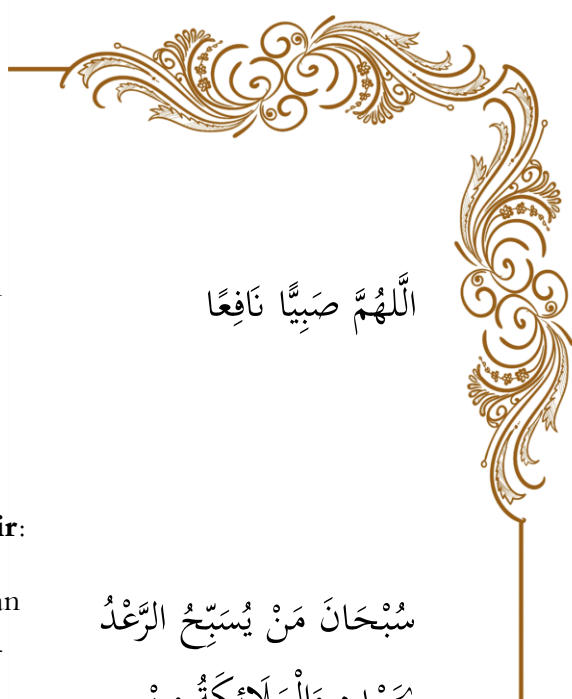 الَّلهُمَّ صَبِيًّا نَافِعًا
ir:
an
سُبْحَانَ مَنْ يُسَبِّحُ الرَّعْدُ